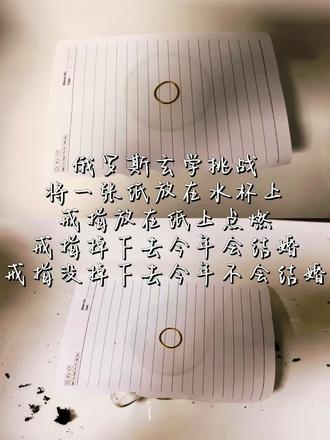 俄罗斯玄学挑战
将一张纸放在水杯上
戒指放在纸上点燃
戒指掉下去今年会结婚
戒指没掉下去今年不会结婚